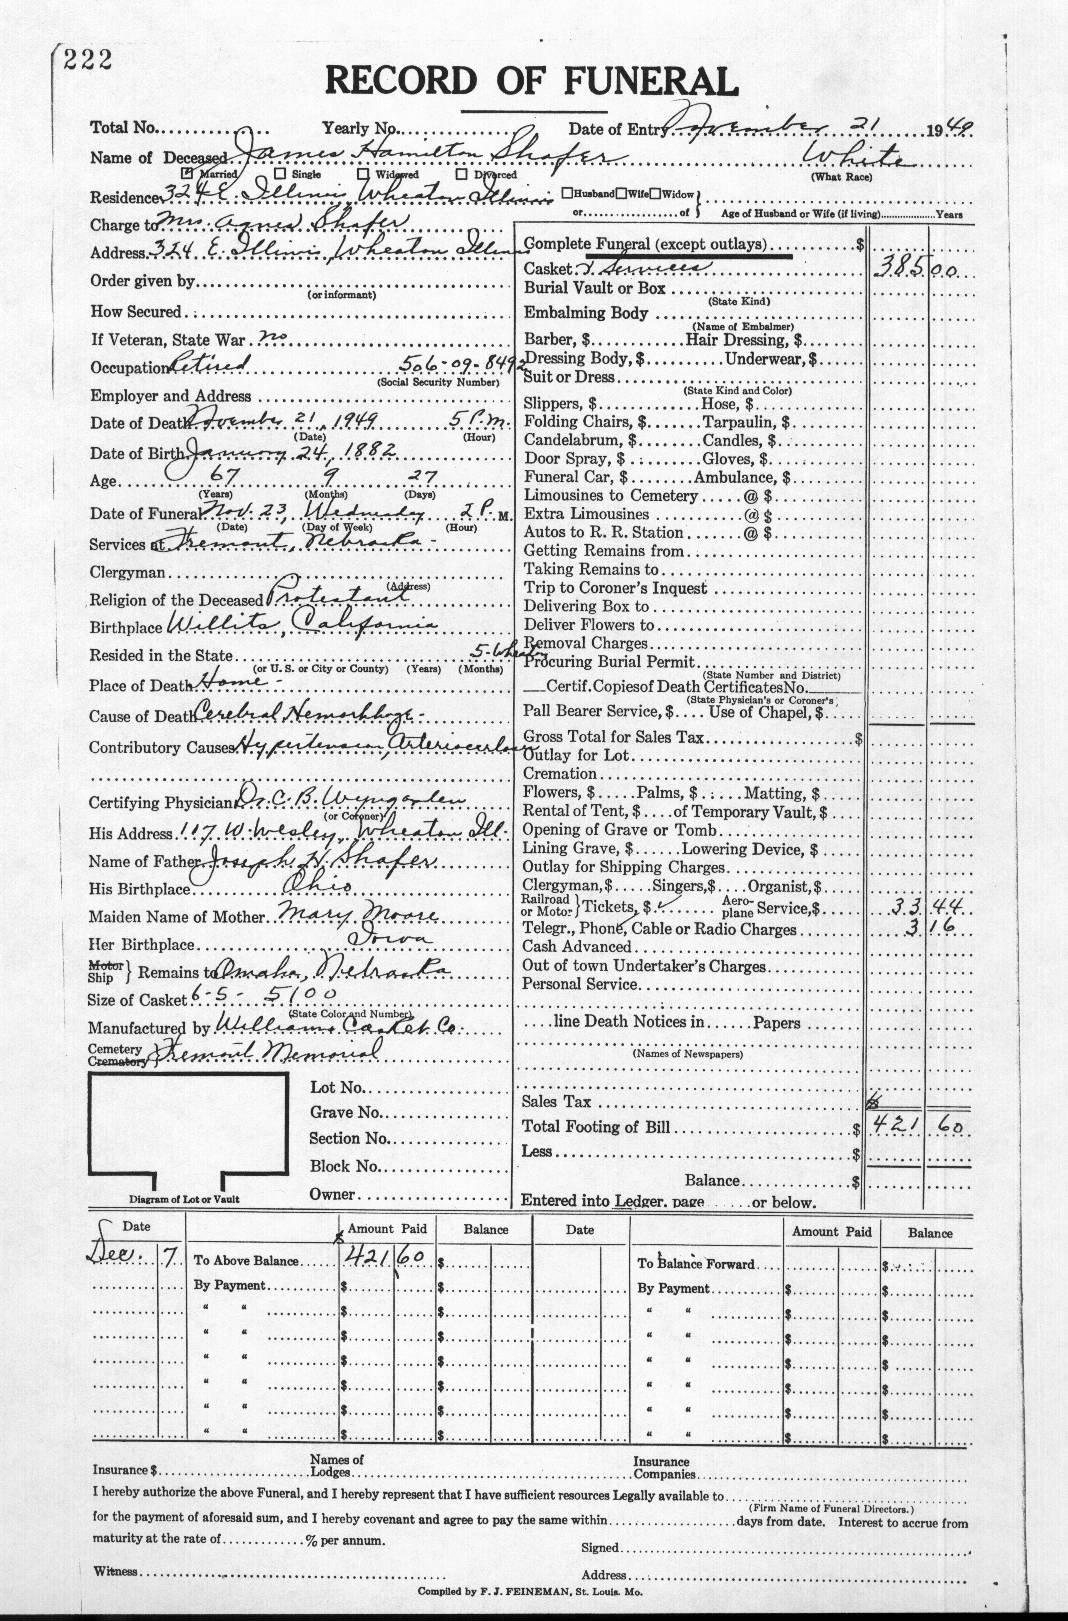 222
RECORD OF FUNERAL
Total No. Yearly No. Date of Entry November 21 1949
Name of Deceased James Hamilton Shafer White
Married Single Widowed Divorced (What Race)
Residence 324 E. Illinois, Wheaton, Illinois Husband Wife Widow
or of Age of Husband or Wife (if living) Years
Charge to Mrs. Agnes Shafer
Address 324 E. Illinois, Wheaton, Illinois
Order given by
(or informant)
How Secured
If Veteran, State War no
Occupation Retired 506-09-8492
(Social Security Number)
Employer and Address
Date of Death November 21, 1949 5 P.m.
(Date) (Hour)
Date of Birth January 24, 1882
Age 67 9 27
(Years) (Months) (Days)
Date of Funeral Nov. 23, Wednesday 2 P. M.
(Date) (Day of Week) (Hour)
Services at Fremont, Nebraska -
Clergyman
(Address)
Religion of the Deceased Protestant
Birthplace Willits, California
Resided in the State 5-Wheaton
(or U. S. or City or County) (Years) (Months)
Place of Death Home -
Cause of Death Cerebral Hemorrhage -
Contributory Causes Hypertension, 
Certifying Physician Dr. C. B. Wyngarden
(or Coroner)
His Address 117 W. Wesley, Wheaton Ill.
Name of Father Joseph H. Shafer
His Birthplace Ohio
Maiden Name of Mother Mary Moore
Her Birthplace Iowa
Motor
Ship } Remains to Omaha, Nebraska
Size of Casket 6-5- 5100
(State Color and Number)
Manufactured by Williams Casket Co.
Cemetery
Crematory } Fremont Memorial
Lot No.
Grave No.
Section No.
Block No.
Owner
Diagram of Lot or Vault
Complete Funeral (except outlays) $
Casket & Services 385 00
Burial Vault or Box
(State Kind)
Embalming Body
(Name of Embalmer)
Barber, $ Hair Dressing, $
Dressing Body, $ Underwear, $
Suit or Dress
(State Kind and Color)
Slippers, $ Hose, $
Folding Chairs, $ Tarpaulin, $
Candelabrum, $ Candles, $
Door Spray, $ Gloves, $
Funeral Car, $ Ambulance, $
Limousines to Cemetery @ $
Extra Limousines @ $
Autos to R. R. Station @ $
Getting Remains from
Taking Remains to
Trip to Coroner's Inquest
Delivering Box to
Deliver Flowers to
Removal Charges
Procuring Burial Permit
(State Number and District)
Certif. Copies of Death Certificates No.
(State Physician's or Coroner's)
Pall Bearer Service, $ Use of Chapel, $
Gross Total for Sales Tax $
Outlay for Lot
Cremation
Flowers, $ Palms, $ Matting, $
Rental of Tent, $ of Temporary Vault, $
Opening of Grave or Tomb
Lining Grave, $ Lowering Device, $
Outlay for Shipping Charges
Clergyman, $ Singers, $ Organist, $
Railroad
or Motor } Tickets, $ ✓ Aero-
plane Service, $ 33 44
Telegr., Phone, Cable or Radio Charges 3 16
Cash Advanced
Out of town Undertaker's Charges
Personal Service
line Death Notices in Papers
(Names of Newspapers)
Sales Tax $
Total Footing of Bill $ 421 60
Less $
Balance $
Entered into Ledger, page or below.
Date Amount Paid Balance Date Amount Paid Balance
Dec. 7 To Above Balance $ 421 60 $ To Balance Forward $
By Payment $ $ By Payment $ $
" " $ $ " " $ $
" " $ $ " " $ $
" " $ $ " " $ $
" " $ $ " " $ $
" " $ $ " " $ $
" " $ $ " " $ $
Insurance $ Names of
Lodges Insurance
Companies
I hereby authorize the above Funeral, and I hereby represent that I have sufficient resources Legally available to
(Firm Name of Funeral Directors.)
for the payment of aforesaid sum, and I hereby covenant and agree to pay the same within days from date. Interest to accrue from
maturity at the rate of % per annum.
Signed
Witness Address
Compiled by F. J. FEINEMAN, St. Louis. Mo.